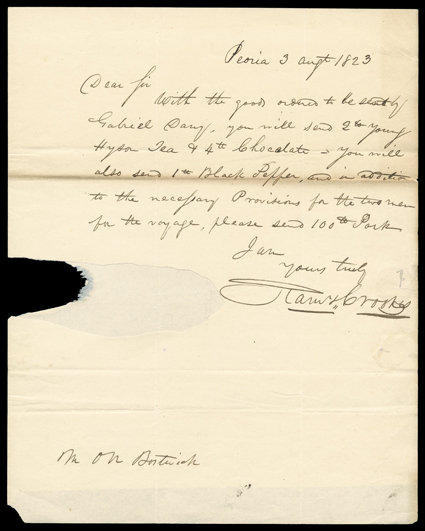 Peoria 3 augt 1823
Dear Sir
With the goods ordered to be sent by
Gabriel Dany, you will send 2lb young
Hyson Tea & 4lb Chocolate = you will
also send 1lb Black Pepper, and in addition
to the necessary Provisions for the two men
for the voyage, please send 100lb Pork
I am
yours truly
Ramy. Crooks
Mr O N Bostwick